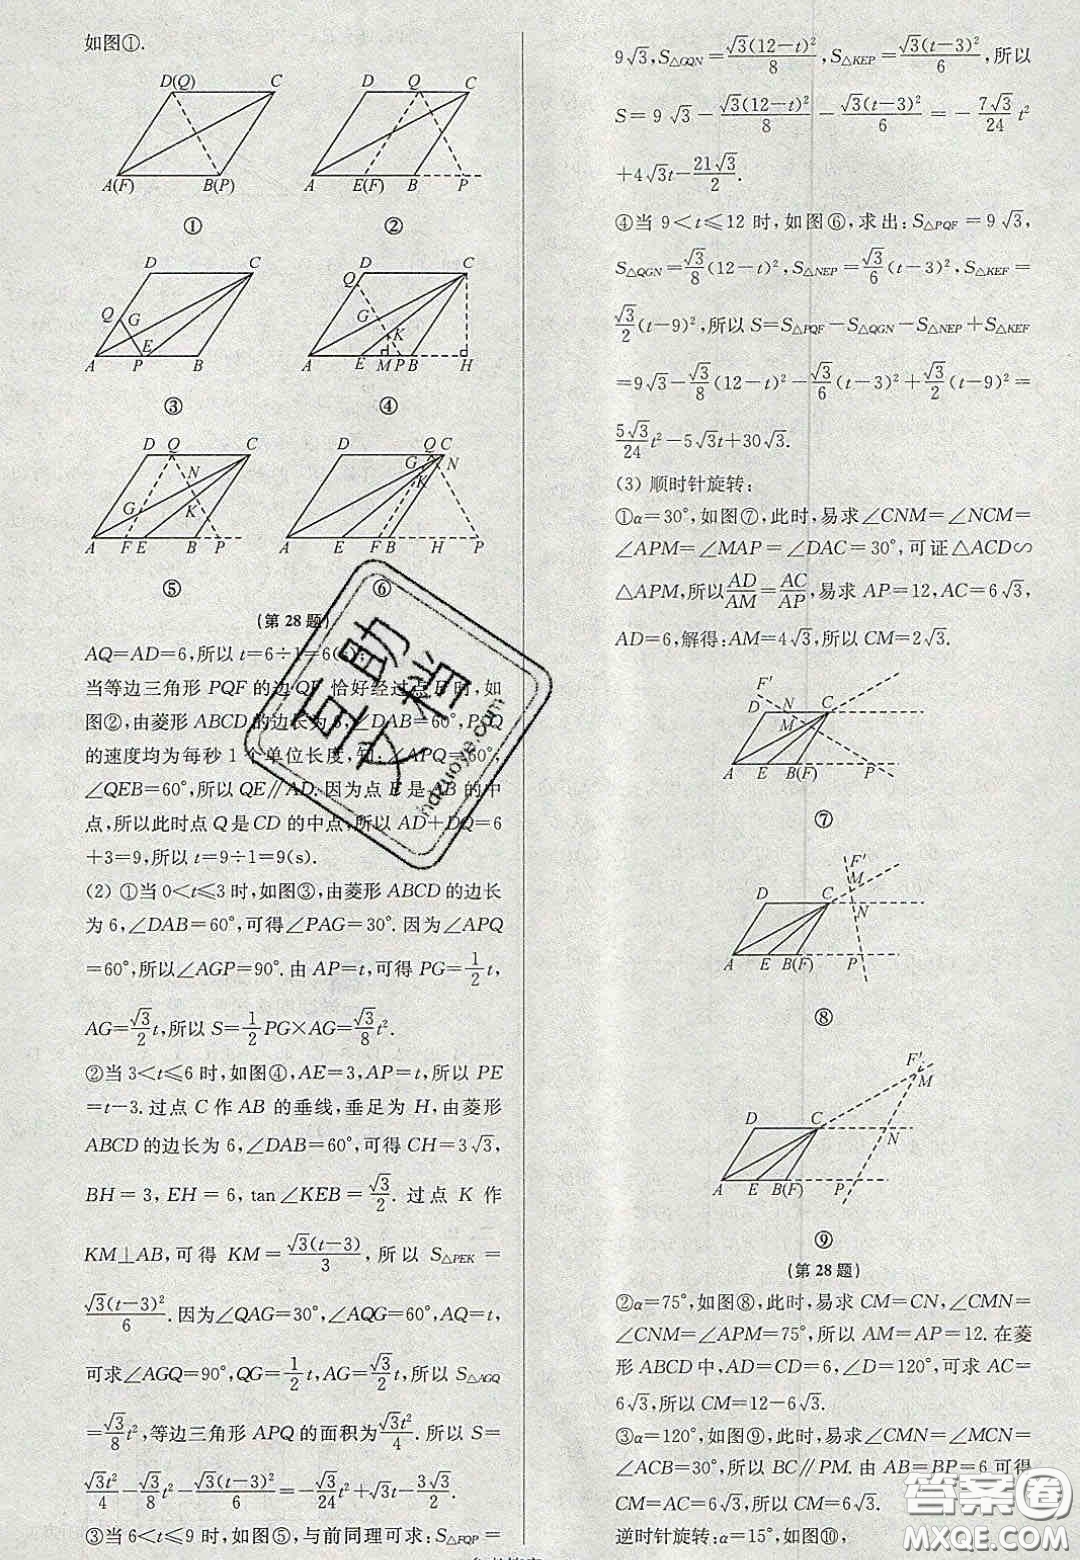 如图①.
D(Q) C
A(F) B(P)
①
D Q C
A E(F) B P
②
D C
Q G E
A P B
③
D C
Q G K
A E M P B H
④
D Q C
N G K
A F E B P
⑤
D Q C
G K N
A E F B H P
⑥
(第 28 题)
AQ=AD=6,所以 t=6÷1=6(s).
当等边三角形 PQF 的边 QF 恰好经过点 E 时,如
图②,由菱形 ABCD 的边长为 6,∠DAB=60°,P,Q
的速度均为每秒 1 个单位长度,知:∠APQ=60°,
∠QEB=60°,所以 QE∥AD.因为点 E 是 AB 的中
点,所以此时点 Q 是 CD 的中点,所以 AD+DQ=6
+3=9,所以 t=9÷1=9(s).
(2) ①当 0<t≤3 时,如图③,由菱形 ABCD 的边长
为 6,∠DAB=60°,可得∠PAG=30°.因为∠APQ
=60°,所以∠AGP=90°.由 AP=t,可得 PG=1/2 t,
AG=√3/2 t,所以 S=1/2 PG×AG=√3/8 t².
②当 3<t≤6 时,如图④,AE=3,AP=t,所以 PE
=t-3.过点 C 作 AB 的垂线,垂足为 H,由菱形
ABCD 的边长为 6,∠DAB=60°,可得 CH=3√3,
BH=3,EH=6,tan∠KEB=√3/2.过点 K 作
KM⊥AB,可得 KM=√3(t-3)/3,所以 S△PEK=
√3(t-3)²/6.因为∠QAG=30°,∠AQG=60°,AQ=t,
可求∠AGQ=90°,QG=1/2 t,AG=√3/2 t,所以 S△AGQ
=√3/8 t²,等边三角形 APQ 的面积为√3t²/4.所以 S=
√3t²/4-√3/8 t²-√3(t-3)²/6=-√3/24 t²+√3t-3√3/2.
③当 6<t≤9 时,如图⑤,与前同理可求:S△FQP=
9√3,S△GQN=√3(12-t)²/8,S△KEP=√3(t-3)²/6,所以
S=9√3-√3(12-t)²/8-√3(t-3)²/6=-7√3/24 t²
+4√3t-21√3/2.
④当 9<t≤12 时,如图⑥,求出:S△PQF=9√3,
S△QGN=√3/8(12-t)²,S△NEP=√3/6(t-3)²,S△KEF=
√3/2(t-9)²,所以 S=S△PQF-S△QGN-S△NEP+S△KEF
=9√3-√3/8(12-t)²-√3/6(t-3)²+√3/2(t-9)²=
5√3/24 t²-5√3t+30√3.
(3) 顺时针旋转:
①α=30°,如图⑦,此时,易求∠CNM=∠NCM=
∠APM=∠MAP=∠DAC=30°,可证△ACD∽
△APM,所以AD/AM=AC/AP,易求 AP=12,AC=6√3,
AD=6,解得:AM=4√3,所以 CM=2√3.
F′
D N C
M
A E B(F) P
⑦
F′
M
D C N
A E B(F) P
⑧
F′
M
D C N
A E B(F) P
⑨
(第 28 题)
②α=75°,如图⑧,此时,易求 CM=CN,∠CMN=
∠CNM=∠APM=75°,所以 AM=AP=12.在菱
形 ABCD 中,AD=CD=6,∠D=120°,可求 AC=
6√3,所以 CM=12-6√3.
③α=120°,如图⑨,此时,易求∠CMN=∠MCN=
∠ACB=30°,所以 BC∥PM.由 AB=BP=6 可得
CM=AC=6√3,所以 CM=6√3.
逆时针旋转:α=15°,如图⑩,
互助文档
hdzuoye.com
答案圈
MXQE.COM